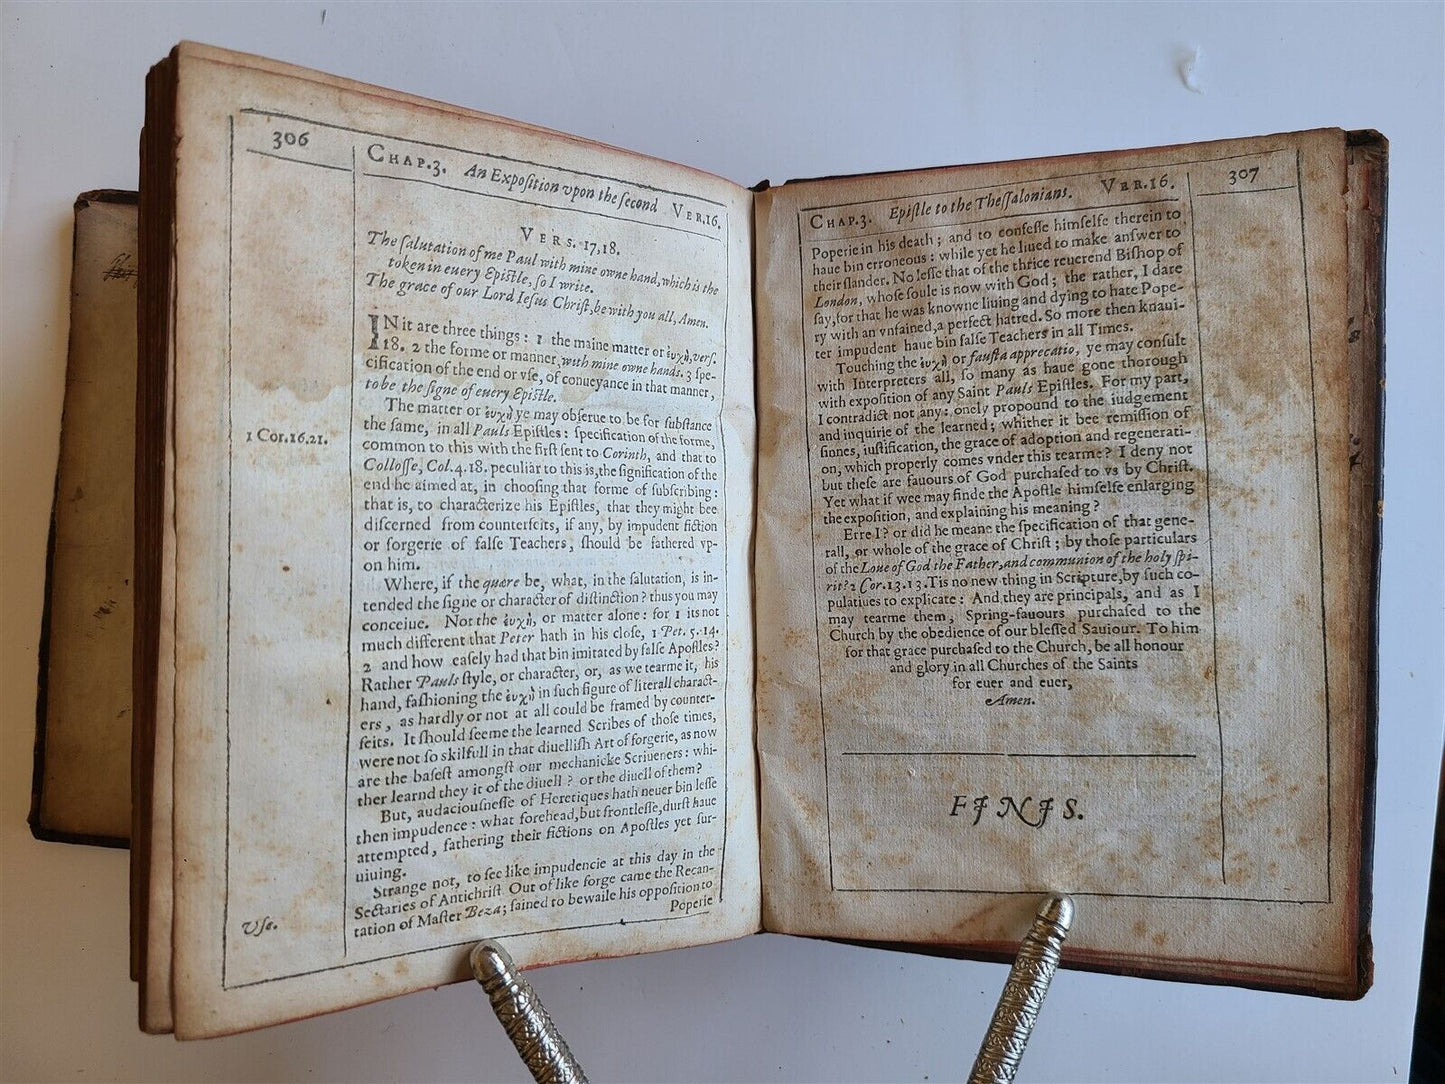 306
CHAP.3. An Expoſition vpon the ſecond VER.16.
VERS. 17,18.
The ſalutation of me Paul with mine owne hand, which is the
token in euery Epiſtle, ſo I write.
The grace of our Lord Ieſus Chriſt, be with you all, Amen.
IN it are three things: 1 the maine matter or ἐυχὴ, verſ.
18. 2 the forme or manner with mine owne hands. 3 ſpe-
cification of the end or vſe, of conueyance in that manner,
to be the ſigne of euery Epiſtle.
The matter or ἐυχὴ ye may obſerue to be for ſubſtance
the ſame, in all Pauls Epiſtles: ſpecification of the forme,
1 Cor.16.21.
common to this with the firſt ſent to Corinth, and that to
Colloſſe, Col.4.18. peculiar to this is, the ſignification of the
end he aimed at, in chooſing that forme of ſubſcribing:
that is, to characterize his Epiſtles, that they might bee
diſcerned from counterfeits, if any, by impudent fiction
or forgerie of falſe Teachers, ſhould be fathered vp-
on him.
Where, if the quære be, what, in the ſalutation, is in-
tended the ſigne or character of diſtinction? thus you may
conceiue. Not the ἐυχὴ, or matter alone: for 1 its not
much different that Peter hath in his cloſe, 1 Pet. 5.14.
2 and how eaſely had that bin imitated by falſe Apoſtles?
Rather Pauls ſtyle, or character, or, as we tearme it, his
hand, faſhioning the ἐυχὴ in ſuch figure of literall charact-
ers, as hardly or not at all could be framed by counter-
feits. It ſhould ſeeme the learned Scribes of thoſe times,
were not ſo skilfull in that diuelliſh Art of forgerie, as now
are the baſeſt amongſt our mechanicke Scriueners: whi-
ther learnd they it of the diuell? or the diuell of them?
But, audaciouſneſſe of Heretiques hath neuer bin leſſe
then impudence: what forehead, but frontleſſe, durſt haue
attempted, fathering their fictions on Apoſtles yet ſur-
uiuing.
Strange not, to ſee like impudencie at this day in the
Sectaries of Antichriſt Out of like forge came the Recan-
Vſe.
tation of Maſter Beza; fained to bewaile his oppoſition to
Poperie
307
CHAP.3. Epiſtle to the Theſſalonians. VER.16.
Poperie in his death; and to confeſſe himſelfe therein to
haue bin erroneous: while yet he liued to make anſwer to
their ſlander. No leſſe that of the thrice reuerend Biſhop of
London, whoſe ſoule is now with God; the rather, I dare
ſay, for that he was knowne liuing and dying to hate Pope-
ry with an vnfained, a perfect hatred. So more then knaui-
ter impudent haue bin falſe Teachers in all Times.
Touching the ἐυχὴ or fauſta apprecatio, ye may conſult
with Interpreters all, ſo many as haue gone thorough
with expoſition of any Saint Pauls Epiſtles. For my part,
I contradict not any: onely propound to the iudgement
and inquirie of the learned; whither it bee remiſſion of
ſinnes, iuſtification, the grace of adoption and regenerati-
on, which properly comes vnder this tearme? I deny not
but theſe are fauours of God purchaſed to vs by Chriſt.
Yet what if wee may finde the Apoſtle himſelfe enlarging
the expoſition, and explaining his meaning?
Erre I? or did he meane the ſpecification of that gene-
rall, or whole of the grace of Chriſt; by thoſe particulars
of the Loue of God the Father, and communion of the holy ſpi-
rit? 2 Cor.13.13. Tis no new thing in Scripture, by ſuch co-
pulatiues to explicate: And they are principals, and as I
may tearme them, Spring-fauours purchaſed to the
Church by the obedience of our bleſſed Sauiour. To him
for that grace purchaſed to the Church, be all honour
and glory in all Churches of the Saints
for euer and euer,
Amen.
FINIS.